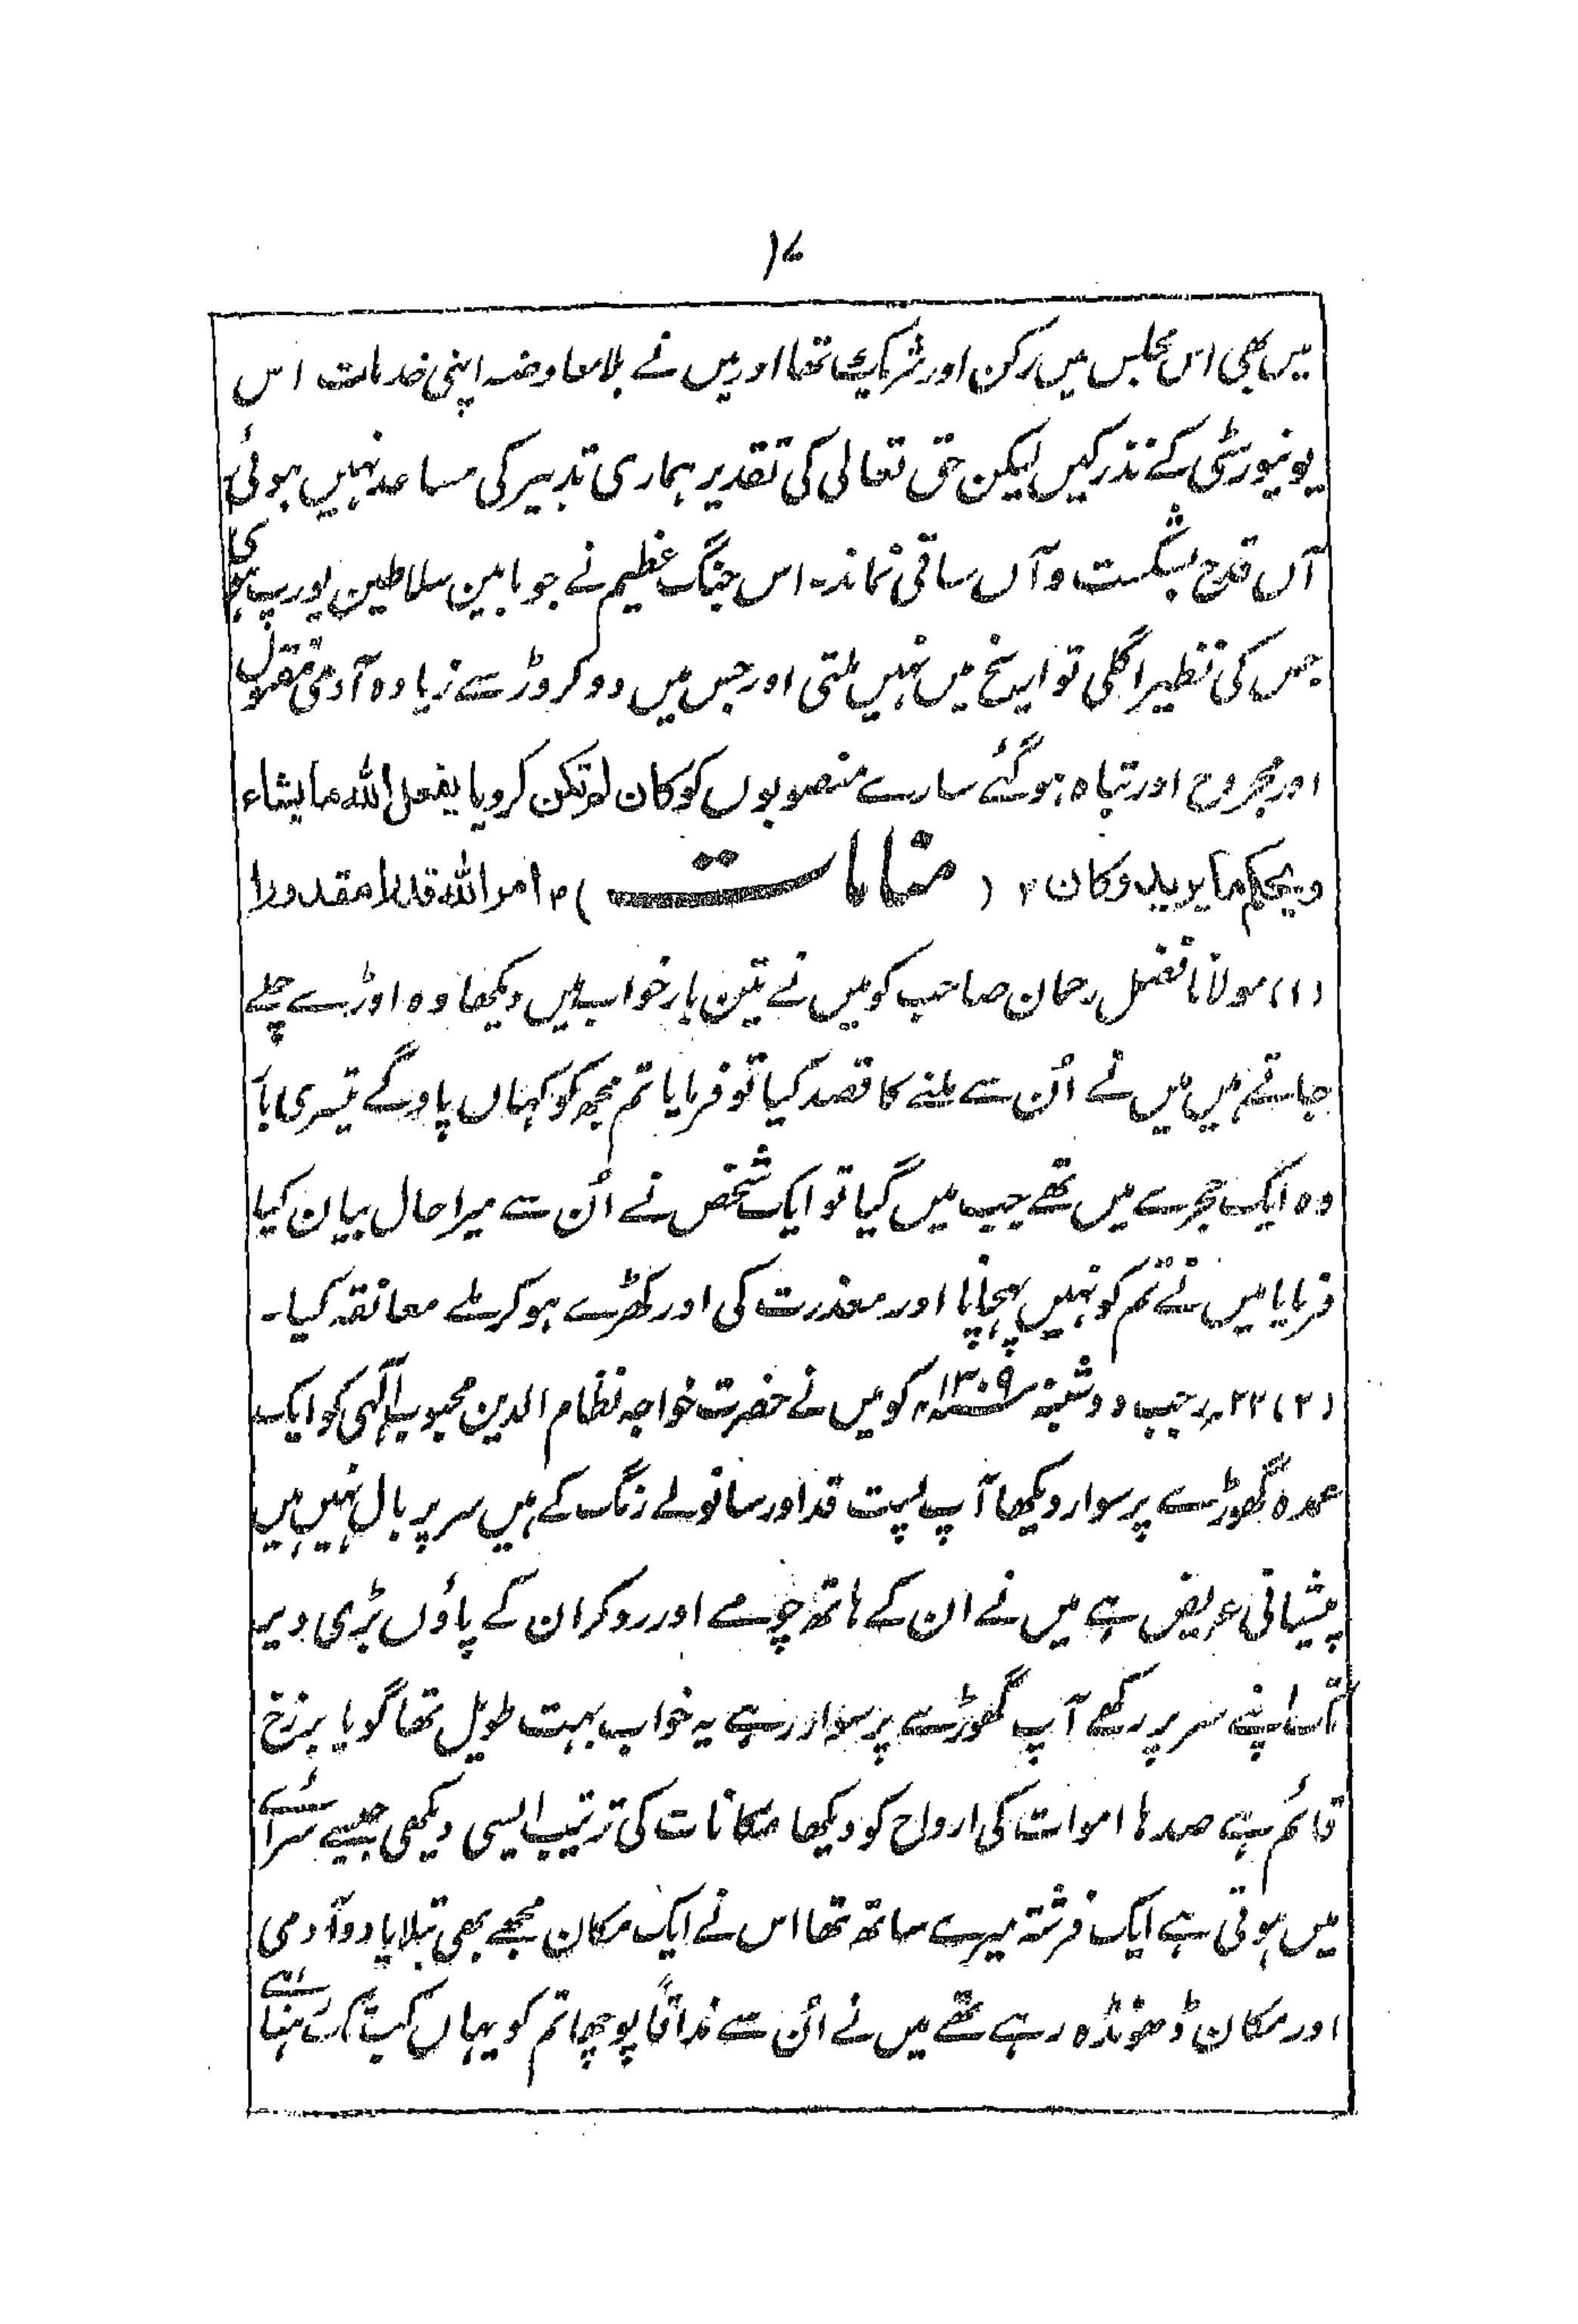 ۱۷
میں بھی اس مجلس میں رکن اور شریک تھا اور میں نے بلا معاوضہ اپنی خدمات اس
یونیورسٹی کے نذر کیں لیکن حق تعالی کی تقدیر ہماری تدبیر کی مساعد نہیں ہوئی
آں قدح بشکست و آں ساقی نماند۔ اس جنگ عظیم نے جو مابین سلاطین یورپ ہوئی
جس کی نظیر اگلی تواریخ میں نہیں ملتی اور جس میں دو کروڑ سے زیادہ آدمی مقتول
اور مجروح اور تباہ ہو گئے سارے منصوبوں کو کان لم تکن کر دیا یفعل الله ما یشاء
ویحکم ما یرید وکان ( منامات ) امر الله قدرا مقدورا
(۱) مولانا فضل رحمان صاحب کو میں نے تین بار خواب میں دیکھا وہ اوڑے چلے
جاتے ہیں میں نے اُن سے ملنے کا قصد کیا تو فرمایا تم مجھ کو کہاں پاوگے تیسری بار
وہ ایک حجرے میں تھے جب میں گیا تو ایک شخص نے اُن سے میرا حال بیان کیا
فرمایا میں نے تم کو نہیں پہچانا اور معذرت کی اور کھڑے ہو کر ملے معانقہ کیا۔
(۲) ۲۲ رجب دوشنبہ ۱۳۰۹؁ کو میں نے حضرت خواجہ نظام الدین محبوب الٰہی کو ایک
عمدہ گھوڑے پر سوار دیکھا آپ پست قد اور سانولے رنگ کے ہیں سر پر بال نہیں ہیں
پیشانی عریض ہے میں نے ان کے ہاتھ چومے اور رو کر ان کے پاؤں بڑی دیر
تک اپنے سر پر رکھے آپ گھوڑے پر سوار رہے یہ خواب بہت طویل تھا گویا برزخ
قائم ہے صدہا اموات کی ارواح کو دیکھا مکانات کی ترتیب ایسی دیکھی جیسے سرائے
میں ہوتی ہے ایک فرشتہ میرے ساتھ تھا اس نے ایک مکان مجھے بھی بتلایا دو آدمی
اور مکان ڈھونڈہ رہے تھے میں نے اُن سے مذاقاً پوچھا تم کو یہاں کب تک رہنا ہے